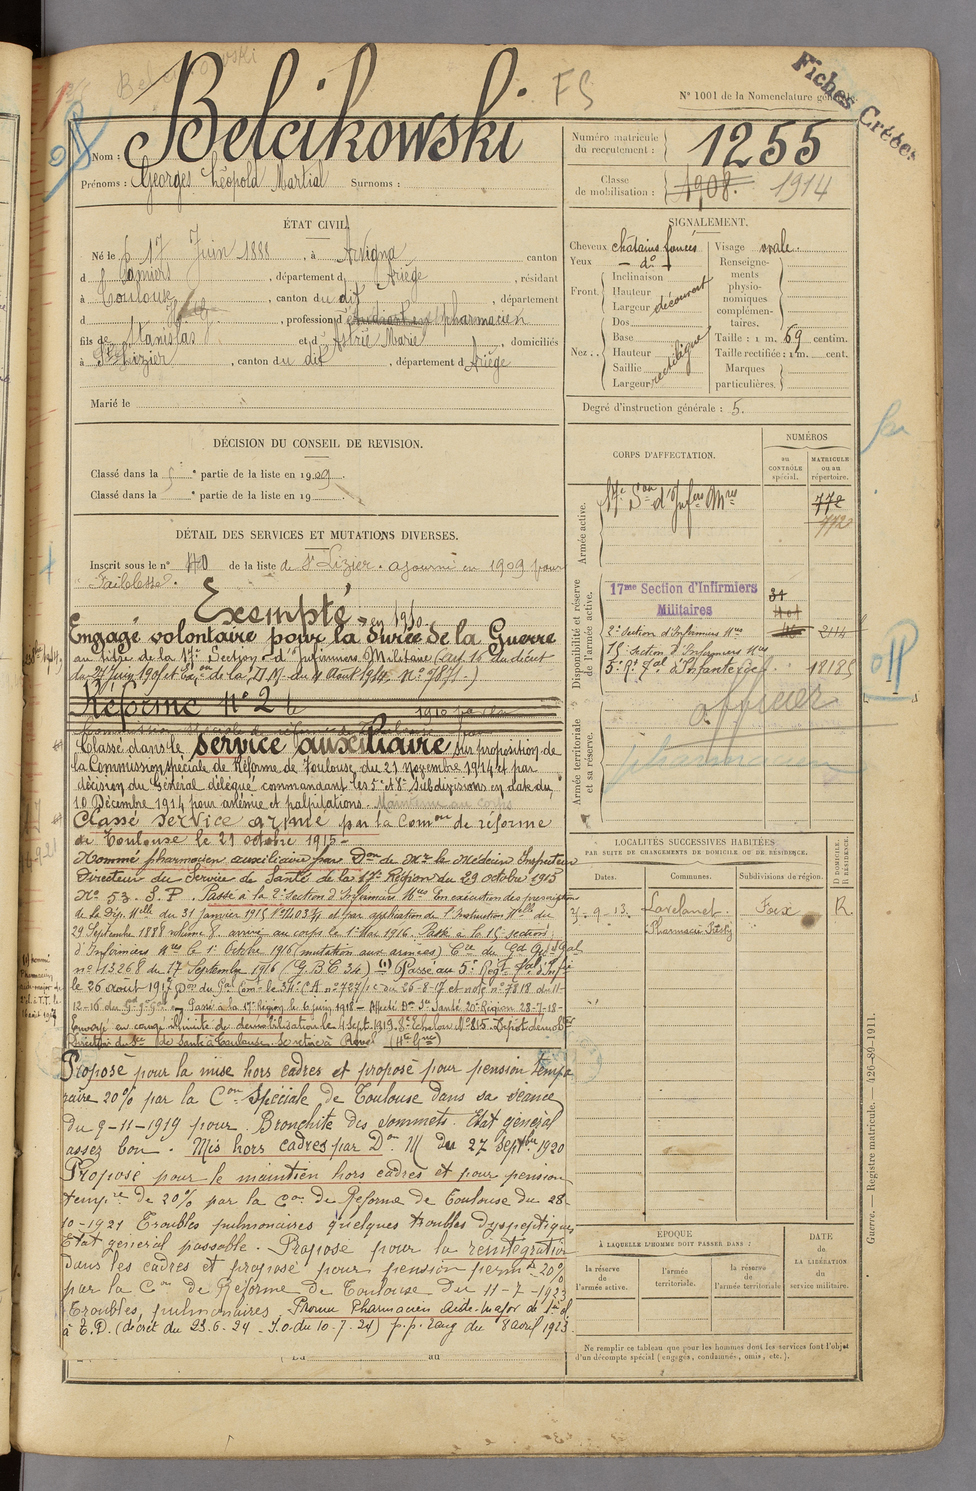 Belcikowski
FS
N° 1001 de la Nomenclature générale.
Fiches Créées
Nom : Belcikowski
Prénoms : Georges Léopold Martial Surnoms :
Numéro matricule du recrutement : 1255
Classe de mobilisation : 1908. 1914
ÉTAT CIVIL.
Né le 17 Juin 1888, à Arvigna canton
d Pamiers, département d Ariège, résidant
à Toulouse, canton du dit, département
d Hte, profession d étudiant en pharmacien
fils de Stanislas et d Astrié Marie, domiciliés
à St Lizier, canton du dit, département d Ariège
Marié le
SIGNALEMENT.
Cheveux châtains foncés
Yeux do
Front. Inclinaison
Hauteur
Largeur découvert
Nez.. Dos
Base
Hauteur rectiligne
Saillie
Largeur
Visage ovale.
Renseignements physionomiques complémentaires.
Taille : 1 m. 69 centim.
Taille rectifiée : 1 m. cent.
Marques particulières.
Degré d'instruction générale : 5.
DÉCISION DU CONSEIL DE REVISION.
Classé dans la 5 e partie de la liste en 1909.
Classé dans la e partie de la liste en 19
DÉTAIL DES SERVICES ET MUTATIONS DIVERSES.
Inscrit sous le n° 40 de la liste de St Lizier. ajourné en 1909 pour
Faiblesse.
Exempté en 1910.
Engagé volontaire pour la durée de la Guerre
au titre de la 17e Section d'Infirmiers Militaire (art 16 du décret
Réforme n° 2
Classé dans le service auxiliaire sur proposition de
la Commission spéciale de Réforme de Toulouse du 21 novembre 1914 et par
décision du Général délégué commandant les 5e et 8e Subdivisions en date du
10 Décembre 1914 pour anémie et palpitations. Maintenu au corps
Classé service armé par la Comon de réforme
de Toulouse le 21 octobre 1915 -
Nommé pharmacien auxiliaire par Don de Mr le Médecin Inspecteur
Directeur du Service de Santé de la 17e Région du 29 octobre 1915
No 53. S. P. Passé à la 2e Section d'Infirmiers Mres En exécution des prescriptions
de la Dép. Mlle du 31 janvier 1915 et par application de l'Instruction Mlle du
29 Septembre 1888 volume 8. arrivé au corps le 1er Mai 1916. Passé à la 15 section
d'Infirmiers Mres le 1er Octobre 1916 (mutation aux armées)
n° 13268 du 17 Septembre 1916 (G.B.C. 34) (1) Passé au 5e Régt
le 26 août 1917
Passé à la 17e Région le 6 juin 1918 - Affecté 20e Région 28-7-18-
Envoyé en congé illimité de démobilisation le 4 Sept. 1919. 8e échelon N° 815
Se retire à Revel (Hte Gne)
Proposé pour la mise hors cadres et proposé pour pension tempo
raire 20% par la Con Spéciale de Toulouse dans sa séance
du 9-11-1919 pour. Bronchite des sommets. Etat général
assez bon. Mis hors cadres par Don M du 27 Septbre 1920
Proposé pour le maintien hors cadres et pour pension
tempre de 20% par la Con de Réforme de Toulouse du 28-
10-1921 Troubles pulmonaires quelques troubles dyspeptiques
Etat général passable. Proposé pour la réintégration
dans les cadres et proposé pour pension permte 20%
par la Con de Réforme de Toulouse du 11-7-1923
Troubles pulmonaires. Promu Pharmacien Aide-Major de 1ere cl
à T.D. (décret du 23.6.24 - J.O. du 10.7.24) p.p. rang du 8 avril 1923
du au
CORPS D'AFFECTATION.
NUMÉROS
au CONTRÔLE spécial.
MATRICULE ou au répertoire.
Armée active.
17e Son d'Infers Mres
772
772
Disponibilité et réserve de l'armée active.
17me Section d'Infirmiers
Militaires
2e Section d'Infirmiers Mres 2114
15 Section d'Infirmiers Mres
18185
officier
pharmacien
Armée territoriale et sa réserve.
LOCALITÉS SUCCESSIVES HABITÉES
PAR SUITE DE CHANGEMENTS DE DOMICILE OU DE RÉSIDENCE.
Dates. Communes. Subdivisions de région. D DOMICILE. R RÉSIDENCE.
9. 13. Lavelanet. Foix R.
Pharmacie
ÉPOQUE
À LAQUELLE L'HOMME DOIT PASSER DANS :
la réserve de l'armée active.
l'armée territoriale.
la réserve de l'armée territoriale
DATE de LA LIBÉRATION du service militaire.
Ne remplir ce tableau que pour les hommes dont les services font l'objet
d'un décompte spécial (engagés, condamnés, omis, etc.).
Guerre. — Registre matricule. — 426-89-1911.